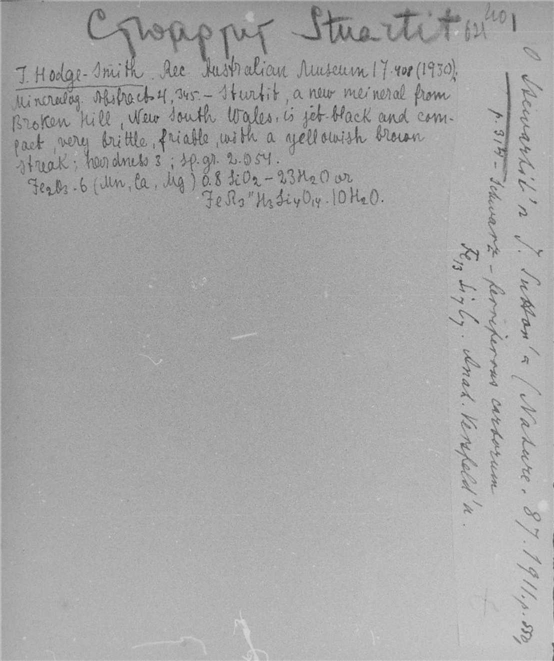 Стюартит Stuartit
621
401
J. Hodge-Smith. Rec Australian Museum 17.408 (1930);
Mineralog. Abstracts 4, 345. - Sturtit, a new meineral from
Broken Hill, New South Wales, is jet-black and com-
pact, very brittle, friable, with a yellowish brown
streak; hardness 3; sp.gr. 2.054.
Fe2O3. 6 (Mn, Ca, Mg) O. 8 SiO2 - 23H2O or
H3Si4O14. 10H2O.
O Stewartit'a J. Sutton'a (Nature. 87. 1911. p. 550,
Schwarz - ferriferous carborum
Anal. Versfeld'a.